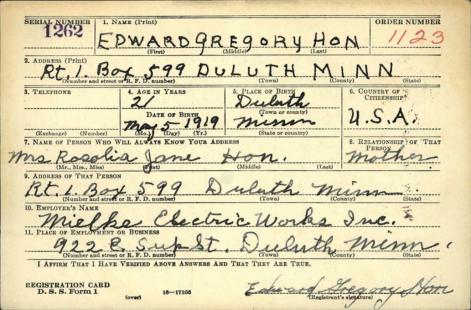 SERIAL NUMBER 1. NAME (Print) ORDER NUMBER
1262 EDWARD GREGORY HON 1123
(First) (Middle) (Last)
2. ADDRESS (Print)
Rt. 1. Box 599 DULUTH MINN
(Number and street or R. F. D. number) (Town) (County) (State)
3. TELEPHONE 4. AGE IN YEARS 5. PLACE OF BIRTH 6. COUNTRY OF CITIZENSHIP
21 Duluth
DATE OF BIRTH (Town or county) U.S.A.
May 5 1919 Minn
(Exchange) (Number) (Mo.) (Day) (Yr.) (State or country)
7. NAME OF PERSON WHO WILL ALWAYS KNOW YOUR ADDRESS 8. RELATIONSHIP OF THAT PERSON
Mrs Rosalia Jane Hon. Mother
(Mr., Mrs., Miss) (First) (Middle) (Last)
9. ADDRESS OF THAT PERSON
Rt. 1. Box 599 Duluth Minn
(Number and street or R. F. D. number) (Town) (County) (State)
10. EMPLOYER'S NAME
Mielke Electric Works Inc.
11. PLACE OF EMPLOYMENT OR BUSINESS
922 E. Sup St. Duluth Minn.
(Number and street or R. F. D. number) (Town) (County) (State)
I AFFIRM THAT I HAVE VERIFIED ABOVE ANSWERS AND THAT THEY ARE TRUE.
REGISTRATION CARD Edward Gregory Hon
D. S. S. Form 1 (over) 16—17105 (Registrant's signature)